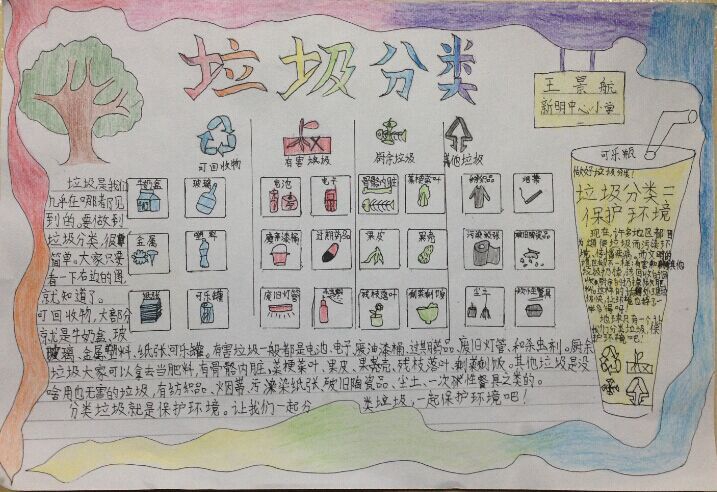 垃圾分类
王景航
新明中心小学
可回收物
有害垃圾
厨余垃圾
其他垃圾
牛奶盒
玻璃
电池
电子
骨骼内脏
菜梗菜叶
纺织品
烟蒂
金属
塑料
废油漆桶
过期药品
果皮
果壳
污染纸张
破旧陶瓷品
纸张
可乐罐
废旧灯管
杀虫剂
残枝落叶
剩菜剩饭
尘土
一次性餐具
垃圾是我们
几乎在哪都见
到的。要做到
垃圾分类,很
简单。大家只要
看一下右边的图
就知道了。
可回收物,大部分
就是牛奶盒、玻
璃、金属、塑料、纸张、可乐罐。有害垃圾一般都是电池、电子、废油漆桶、过期药品、废旧灯管、和杀虫剂。厨余
垃圾大家可以拿去当肥料,有骨骼内脏、菜梗菜叶、果皮、果壳、残枝落叶、剩菜剩饭。其他垃圾是没
啥用也无害的垃圾,有纺织品、烟蒂、污染纸张、破旧陶瓷品、尘土、一次性餐具之类的。
分类垃圾就是保护环境。让我们一起分类垃圾,一起保护环境吧!
可乐瓶
做好垃圾分类!
垃圾分类=
保护环境
现在,许多地区都
地球只有一个,让
我们分类垃圾,保
护环境吧!